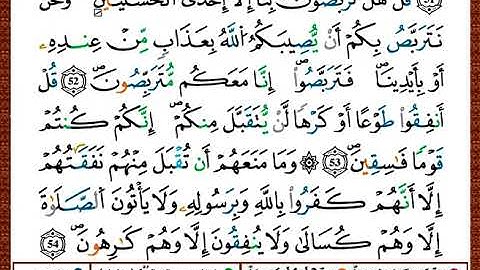 قُلْ هَلْ تَرَبَّصُونَ بِنَآ إِلَّآ إِحْدَى ٱلْحُسْنَيَيْنِۖ وَنَحْنُ
نَتَرَبَّصُ بِكُمْ أَن يُصِيبَكُمُ ٱللَّهُ بِعَذَابٍ مِّنْ عِندِهِۦٓ
أَوْ بِأَيْدِينَاۖ فَتَرَبَّصُوٓا۟ إِنَّا مَعَكُم مُّتَرَبِّصُونَۖ ۝٥٢ قُلْ
أَنفِقُوا۟ طَوْعًا أَوْ كَرْهًا لَّن يُتَقَبَّلَ مِنكُمْۖ إِنَّكُمْ كُنتُمْ
قَوْمًا فَـٰسِقِينَۖ ۝٥٣ ۞ وَمَا مَنَعَهُمْ أَن تُقْبَلَ مِنْهُمْ نَفَقَـٰتُهُمْ
إِلَّآ أَنَّهُمْ كَفَرُوا۟ بِٱللَّهِ وَبِرَسُولِهِۦ وَلَا يَأْتُونَ ٱلصَّلَوٰةَ
إِلَّا وَهُمْ كُسَالَىٰ وَلَا يُنفِقُونَ إِلَّا وَهُمْ كَـٰرِهُونَۖ ۝٥٤